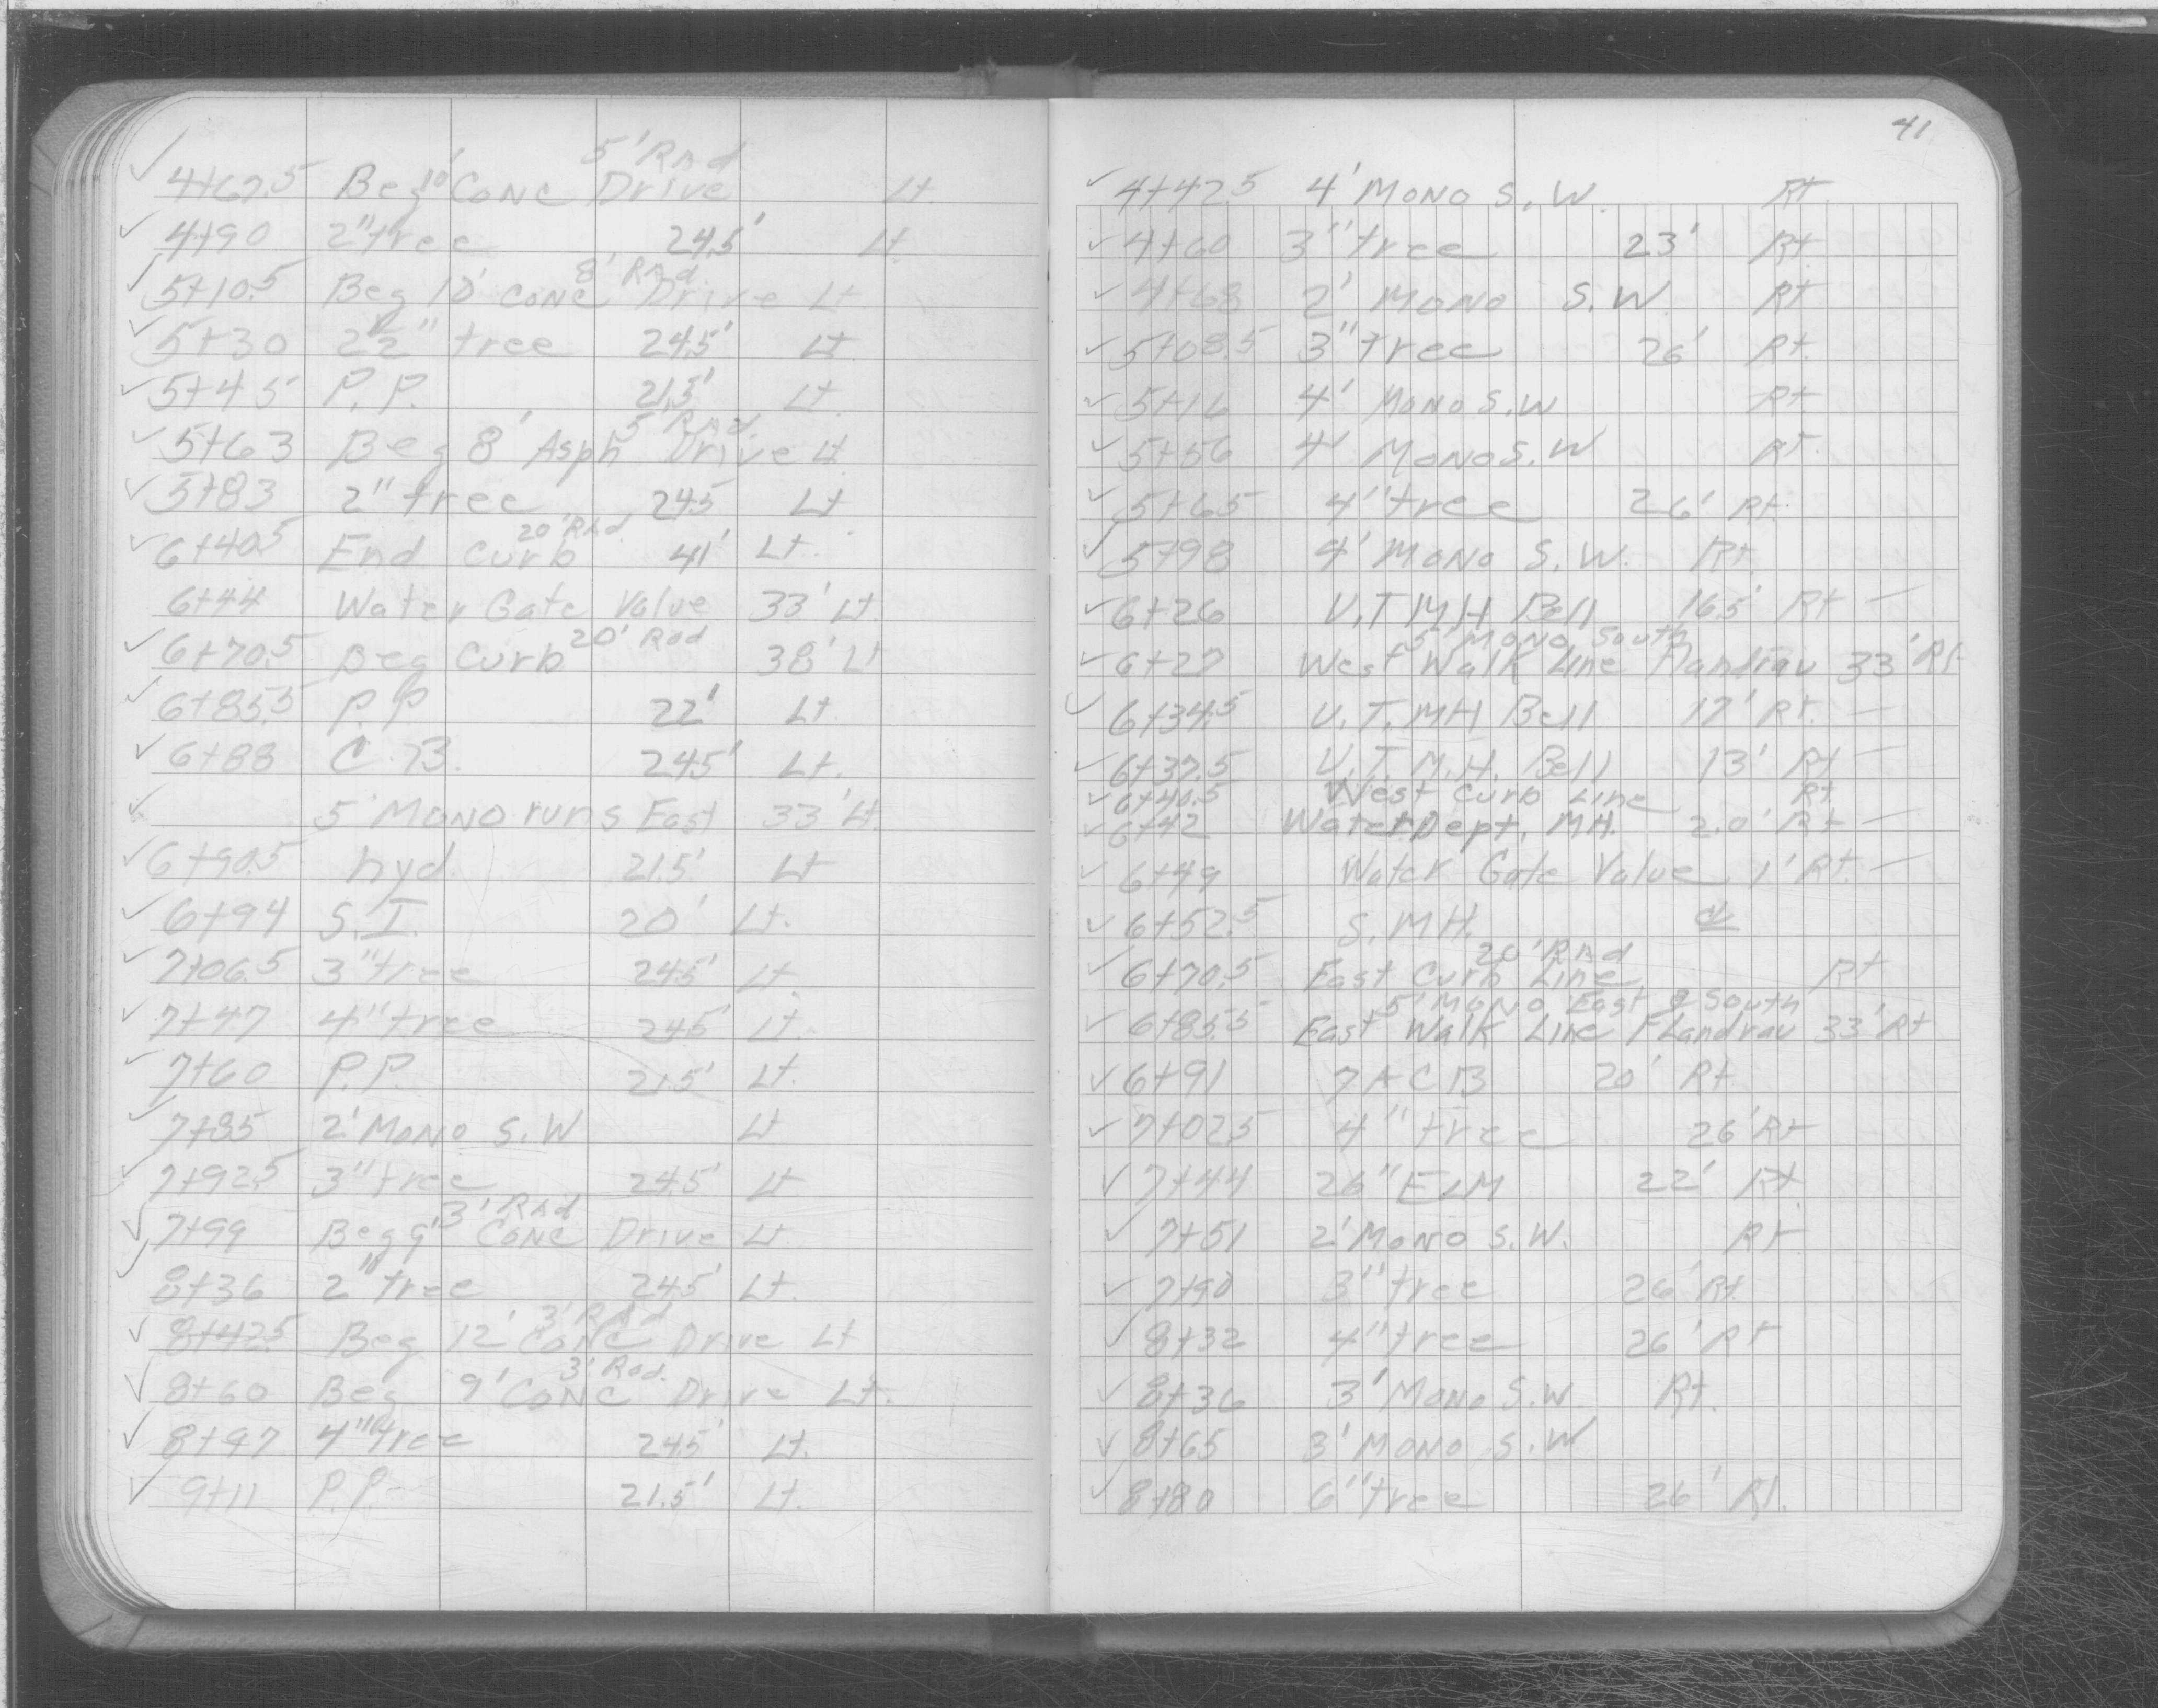 ✓ 4+67.5 Beg 10' Conc Drive 5' Rad Lt.
✓ 4+90 2" tree 24.5' Lt.
✓ 5+10.5 Beg 10' Conc Drive 8' Rad. Lt
✓ 5+30 2½" tree 24.5' Lt
✓ 5+45 P.P. 21.5' Lt.
✓ 5+63 Beg 8' Asph Drive 5' Rad. Lt.
✓ 5+83 2" tree 24.5 Lt
✓ 6+40.5 End Curb 20' Rad 41' Lt.
6+44 Water Gate Valve 33' Lt.
✓ 6+70.5 Beg Curb 20' Rad 38' Lt
✓ 6+85.5 P.P 22' Lt
✓ 6+88 C.B. 24.5' Lt.
✓ 5' Mono runs East 33' Lt.
✓ 6+90.5 hyd. 21.5' Lt
✓ 6+94 S.I. 20' Lt.
✓ 7+06.5 3" tree 24.5' Lt.
✓ 7+47 4" tree 24.5' Lt.
✓ 7+60 P.P. 21.5' Lt.
✓ 7+85 2' Mono S.W Lt
✓ 7+92.5 3" tree 24.5' Lt
✓ 7+99 Beg 9' Conc Drive 3' Rad Lt
✓ 8+36 2" tree 24.5' Lt.
✓ 8+42.5 Beg 12' Conc Drive 3' Rad Lt
✓ 8+60 Beg 9' Conc Drive 3' Rad. Lt.
✓ 8+97 4" tree 24.5' Lt.
✓ 9+11 P.P. 21.5' Lt.
41
✓ 4+42.5 4' Mono S.W. Rt.
✓ 4+60 3" tree 23' Rt.
✓ 4+68 2' Mono S.W. Rt
✓ 5+08.5 3" tree 26' Rt.
✓ 5+16 4' Mono S.W Rt
✓ 5+56 4' Mono S.W Rt.
✓ 5+65 4" tree 26' Rt.
✓ 5+98 4' Mono S.W. Rt.
✓ 6+26 U.T MH Bell 16.5' Rt —
5' Mono South
✓ 6+27 West Walk Line Flandrau 33' Rt
✓ 6+34.5 U.T. MH Bell 17' Rt. —
✓ 6+37.5 U.T. M.H. Bell 13' Rt —
✓ 6+40.5 West Curb Line Rt
✓ 6+42 Water Dept. MH. 2.0' Rt —
✓ 6+49 Water Gate Valve 1' Rt. —
✓ 6+52.5 S.MH. ℄
✓ 6+70.5 East Curb Line 20' Rad Rt
5' Mono East & South
✓ 6+85.5 East Walk Line Flandrau 33' Rt
✓ 6+91 7A CB 20' Rt
✓ 7+02.5 4" tree 26' Rt
✓ 7+44 26" ELM 22' Rt.
✓ 7+51 2' Mono S.W. Rt.
✓ 7+90 3" tree 26' Rt
✓ 8+32 4" tree 26' Rt
✓ 8+36 3' Mono S.W. Rt.
✓ 8+65 3' Mono S.W
✓ 8+80 6" tree 26' Rt.